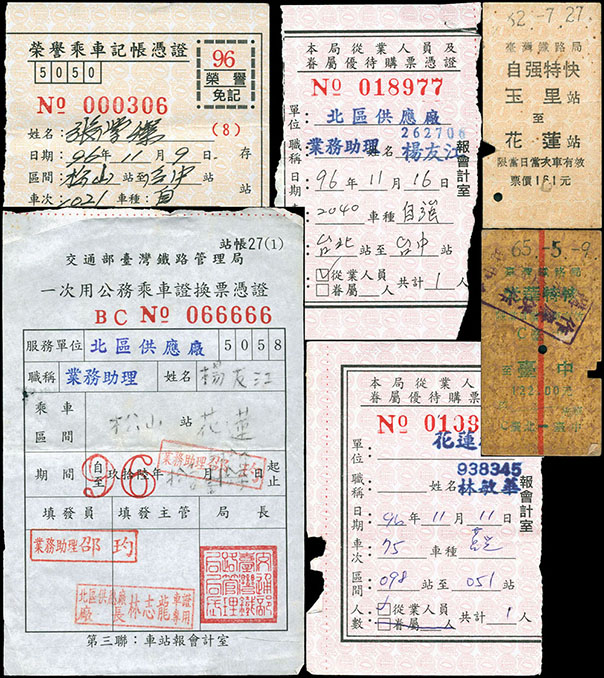 榮譽乘車記帳憑證
5050
96
榮譽
免記
Nº 000306
姓名:
(8)
日期:96年11月9日
存
區間:松山站至台中站
站
車次:1021 車種:自
本局從業人員及
眷屬優待購票憑證
Nº 018977
單位: 北區供應廠
262706
職稱 業務助理 姓名 楊友江
報會計室
日期 96年11月16日
2040 車種 自强
台北站至台中站
☑從業人員
□眷屬 人 共計1人
62.-7.27.
臺灣鐵路局
自强特快
玉里站
至
花蓮站
限當日當次車有效
票價181元
65.-5.-9.
臺灣鐵路局
至臺中
站帳27(1)
交通部臺灣鐵路管理局
一次用公務乘車證換票憑證
BC Nº 066666
服務單位 北區供應廠 5058
職稱 業務助理 姓名 楊友江
乘車
區間 松山站 花蓮
業務助理 邵玓
期間 自至 玖拾陸年 月 日 起止
96
填發員 填發主管 局長
業務助理 邵玓
交通部臺灣鐵路管理局局長
北區供應廠廠長 林志龍 乘車證專用
第三聯:車站報會計室
本局從業人
眷屬優待購票
Nº 0103
單位: 花蓮
938345
職稱: 姓名 林敏華
報會計室
日期:96年11月11日
車次:75 車種 莒
區間:098站至051站
人數: ☑從業人員
□眷屬 人 共計1人